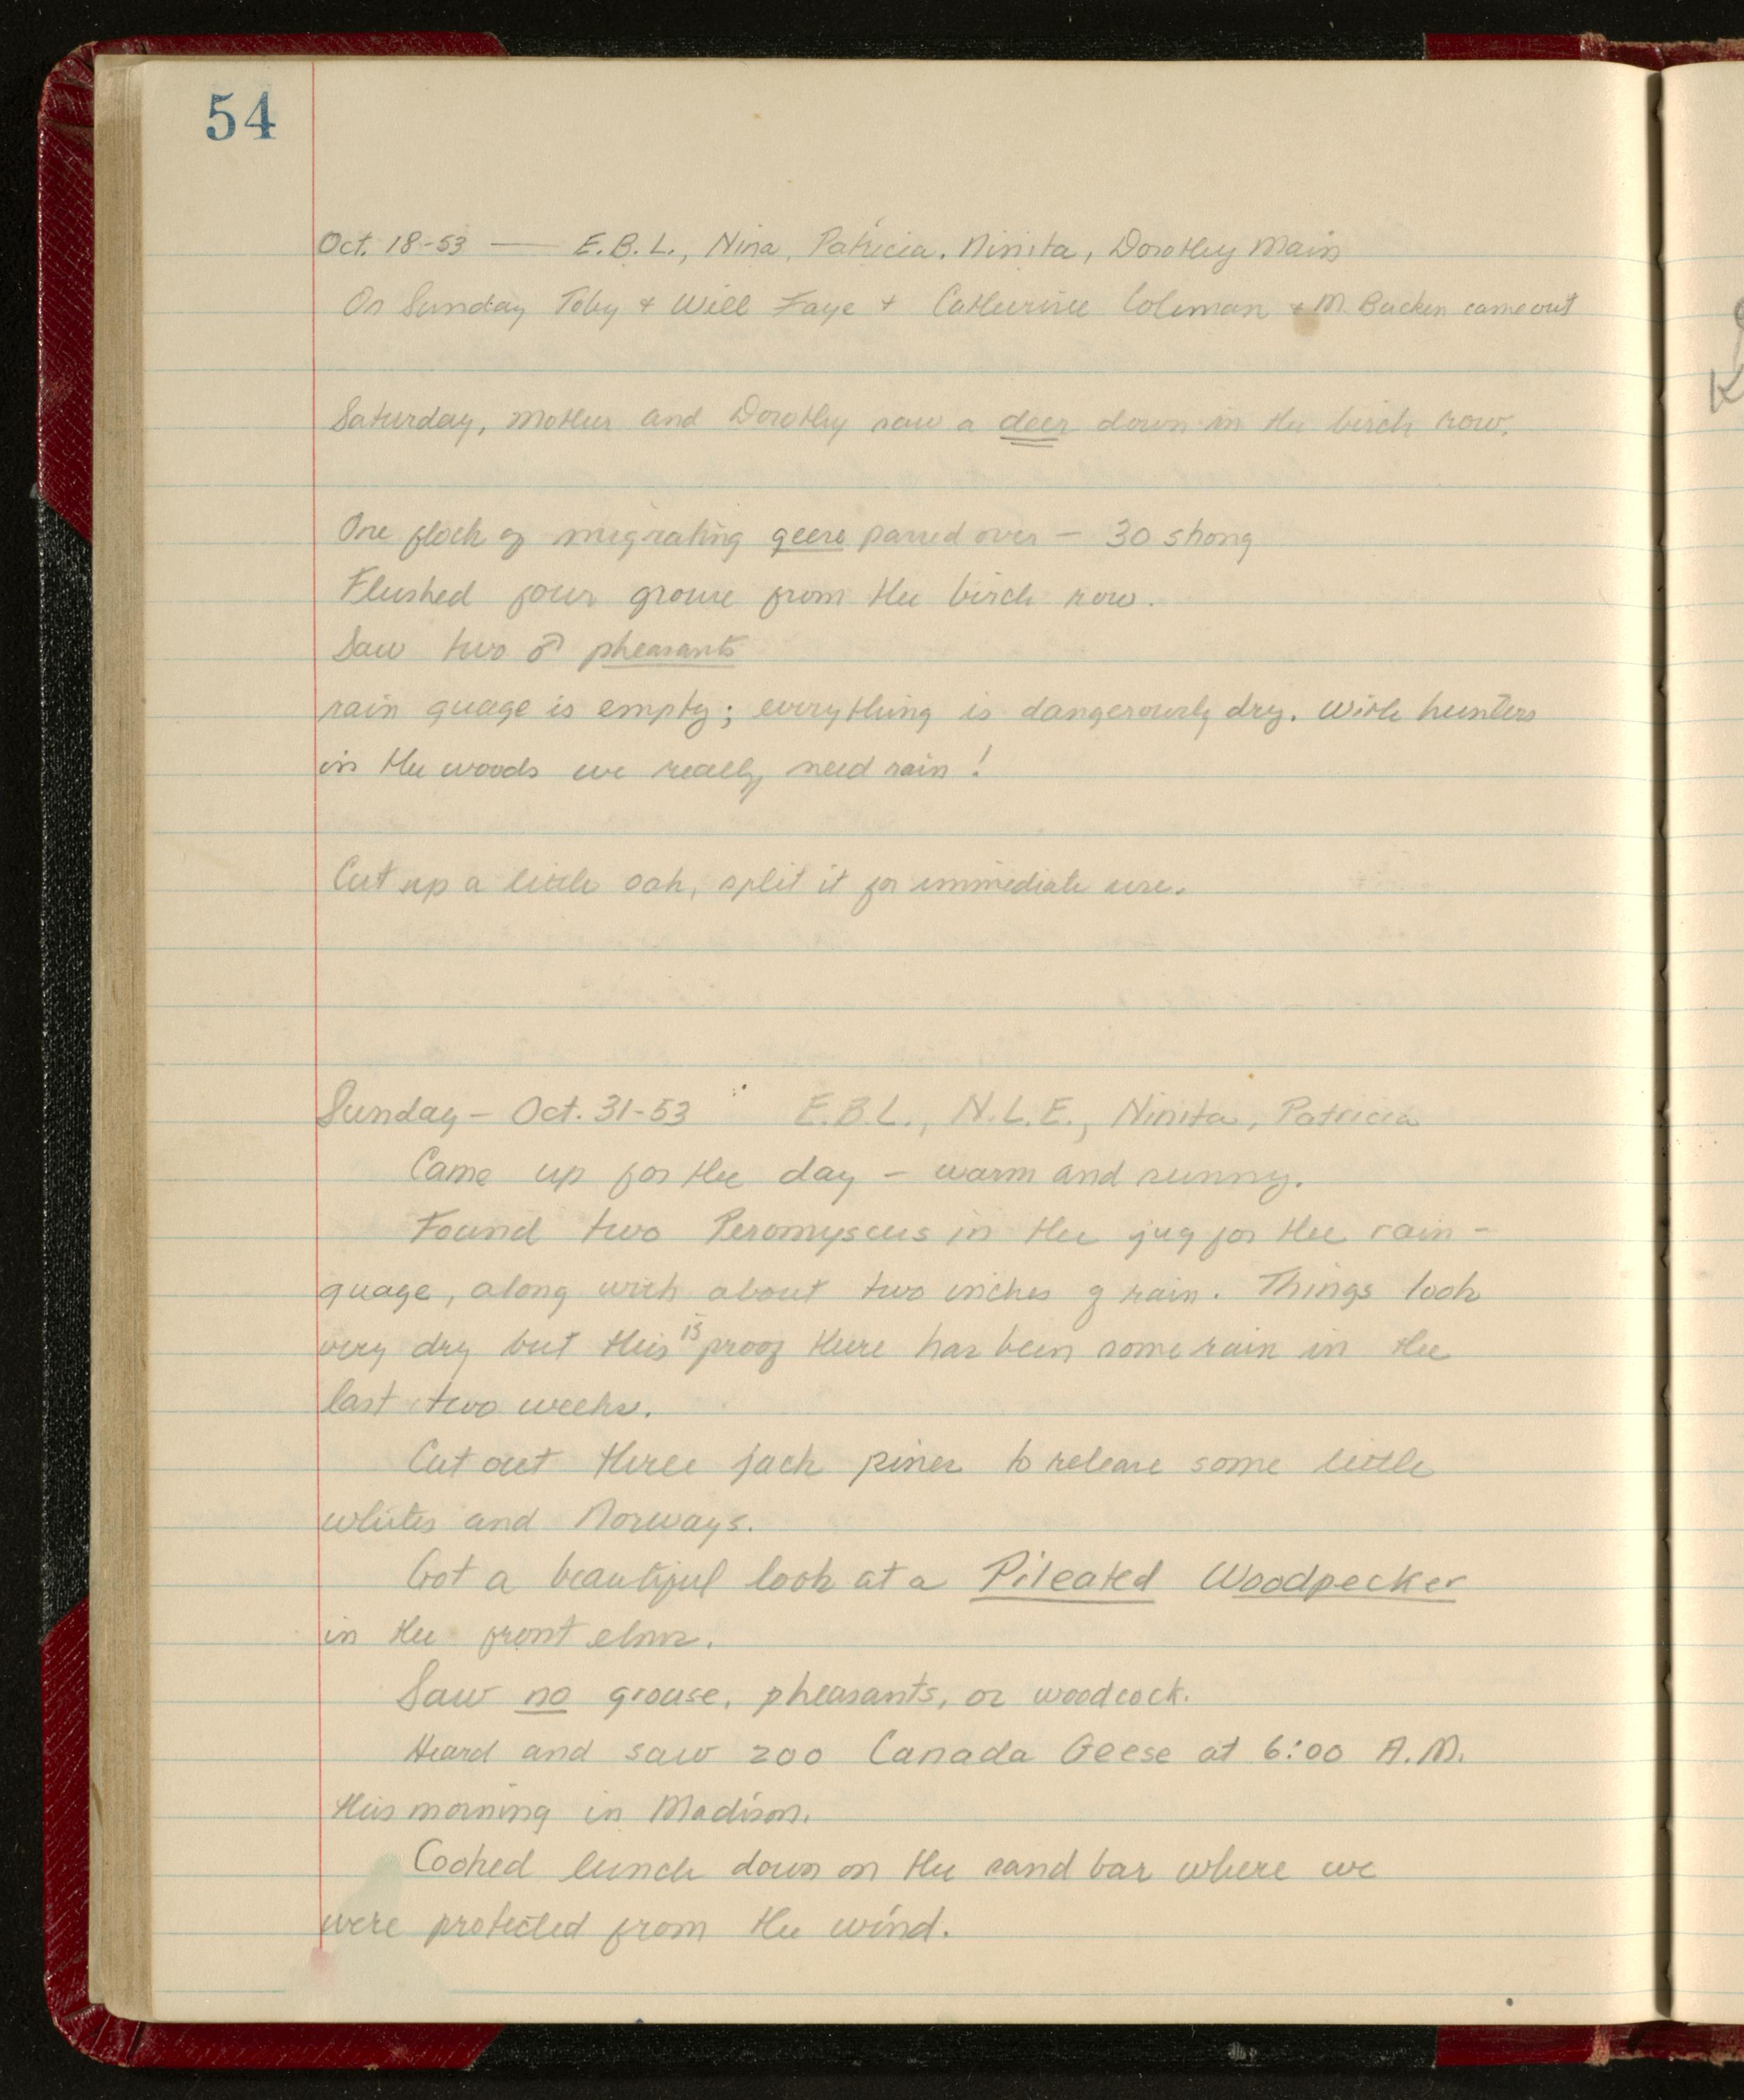 54
Oct. 18-53 — E.B.L., Nina, Patricia, Ninita, Dorothy Main
On Sunday Toby & Will Faye + Catherine Coleman + M. came out
Saturday, Mother and Dorothy saw a deer down in the birch row.
One flock of migrating geese passed over – 30 strong
Flushed four grouse from the birch row.
Saw two ♂ pheasants
rain guage is empty; everything is dangerously dry. With hunters
in the woods we really need rain!
Cut up a little oak, split it for immediate use.
Sunday – Oct. 31-53 E.B.L., N.L.E., Ninita, Patricia
Came up for the day – warm and sunny.
Found two Peromyscus in the jug for the rain-
guage, along with about two inches of rain. Things look
very dry but this is proof there has been some rain in the
last two weeks.
Cut out three jack pines to release some little
whites and Norways.
Got a beautiful look at a Pileated Woodpecker
in the front elms.
Saw no grouse, pheasants, or woodcock.
Heard and saw 200 Canada Geese at 6:00 A.M.
this morning in Madison.
Cooked lunch down on the sand bar where we
were protected from the wind.